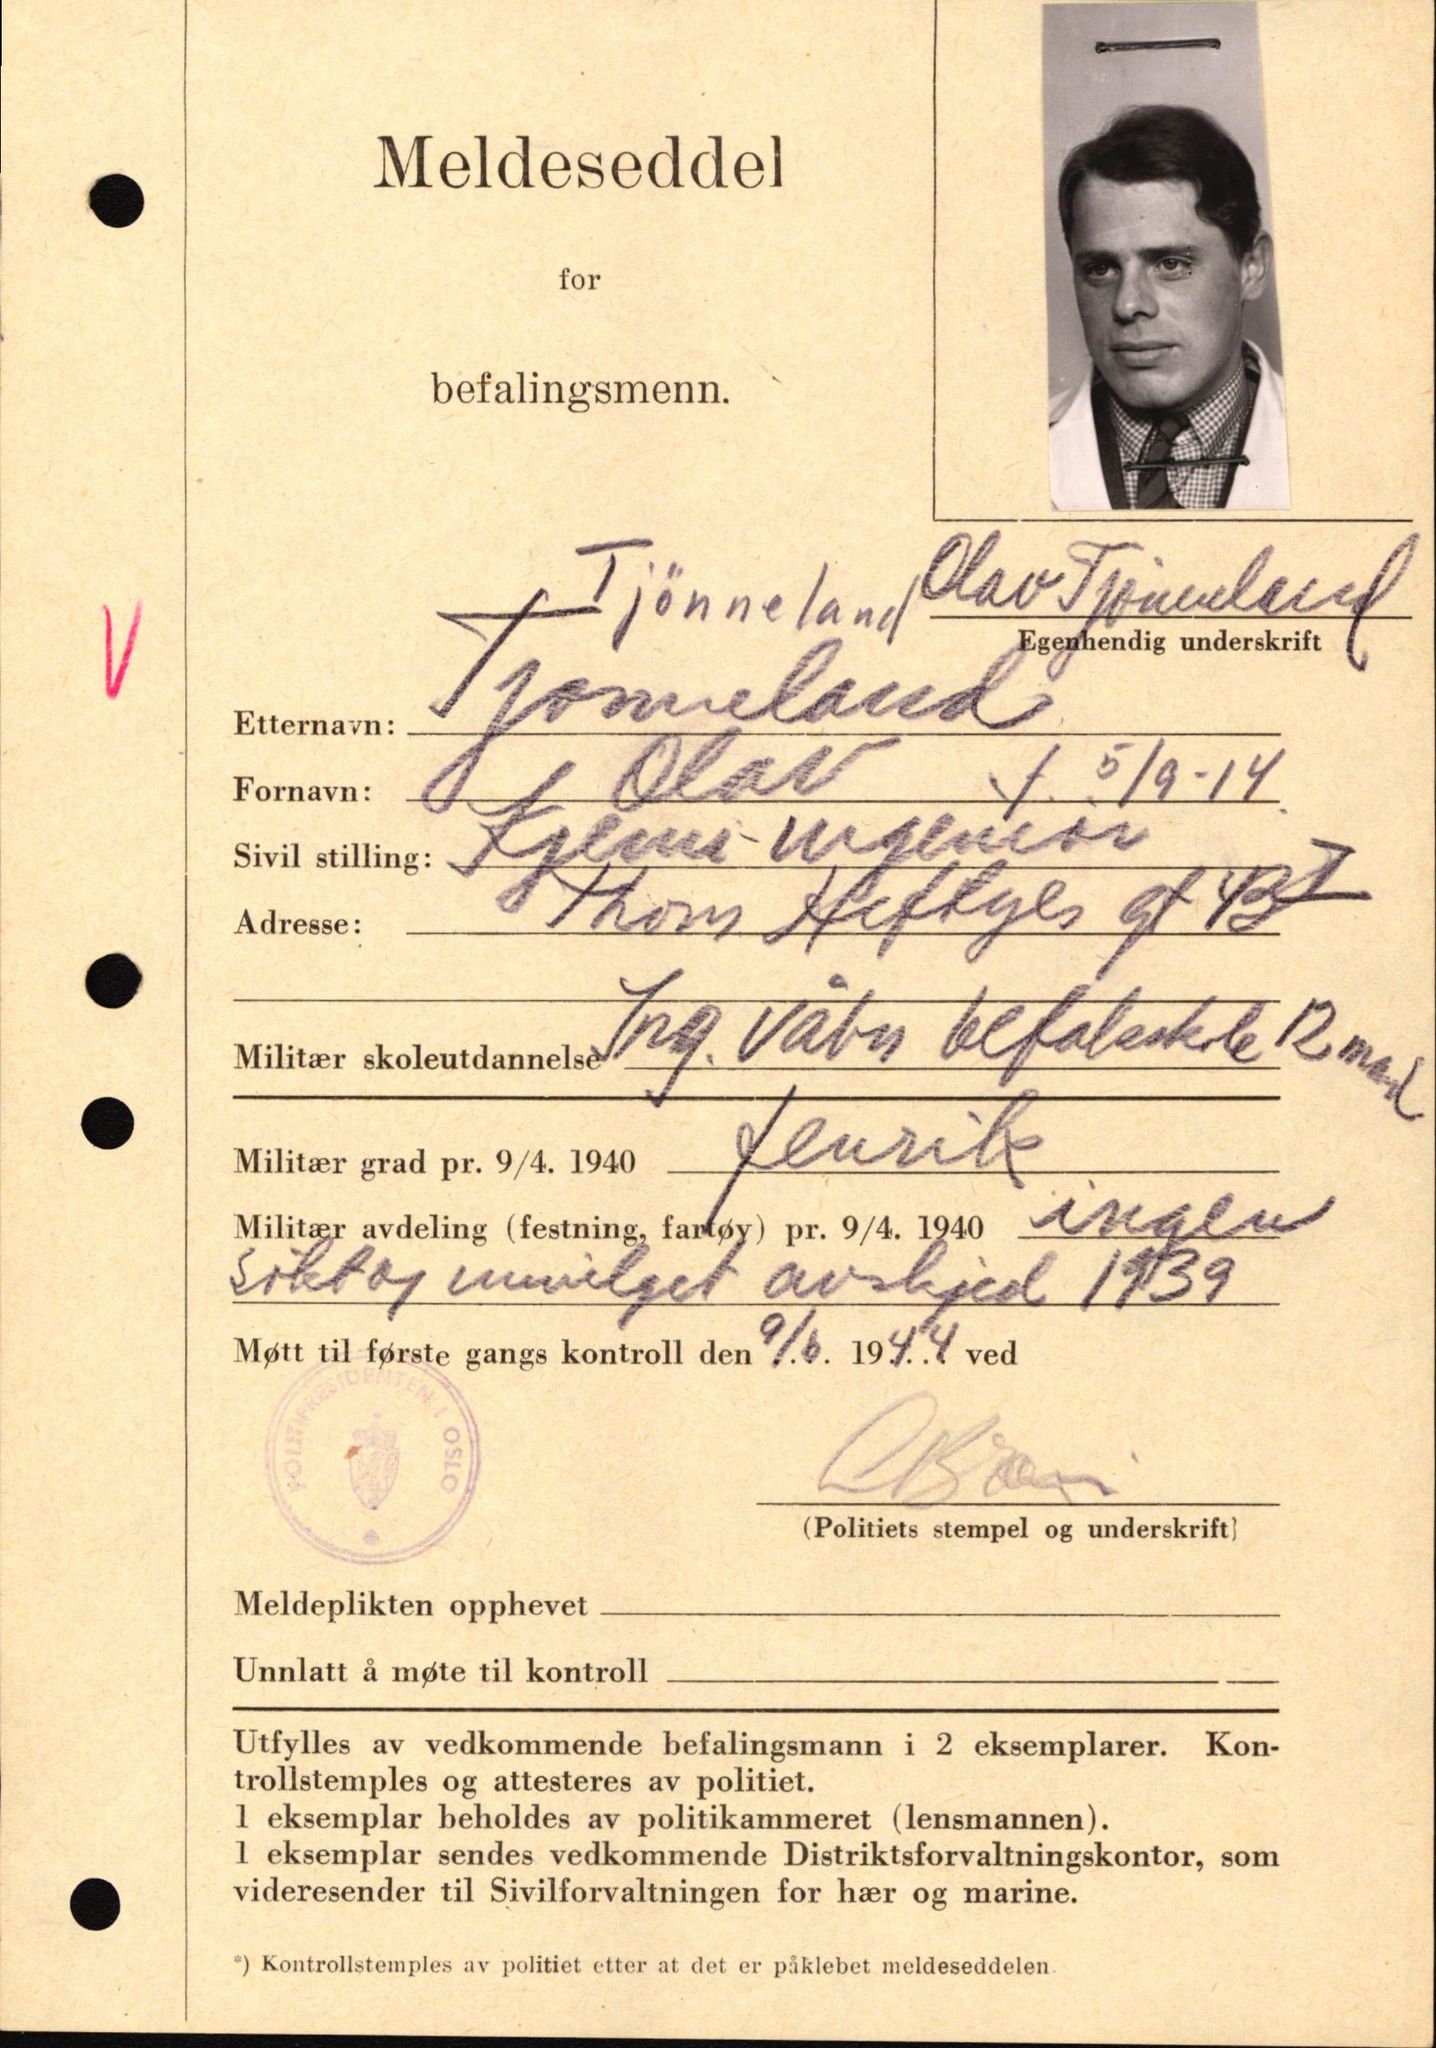 Meldeseddel
for
befalingsmenn.
Tjönneland
Olav Tjönneland
Egenhendig underskrift
Etternavn: Tjönneland
Fornavn: Olav f. 5/9-14
Sivil stilling: Kjemi-ingeniör
Adresse: Thom Heftyes gt 43 I
Militær skoleutdannelse Ing. våbn befalsskole 12 mnd
Militær grad pr. 9/4. 1940 fenrik
Militær avdeling (festning, fartøy) pr. 9/4. 1940 ingen
sökt og innvilget avskjed 1939
Møtt til første gangs kontroll den 9/6. 1944 ved
POLITIPRESIDENTEN I OSLO
(Politiets stempel og underskrift)
Meldeplikten opphevet
Unnlatt å møte til kontroll
Utfylles av vedkommende befalingsmann i 2 eksemplarer. Kon-
trollstemples og attesteres av politiet.
1 eksemplar beholdes av politikammeret (lensmannen).
1 eksemplar sendes vedkommende Distriktsforvaltningskontor, som
videresender til Sivilforvaltningen for hær og marine.
*) Kontrollstemples av politiet etter at det er påklebet meldeseddelen.